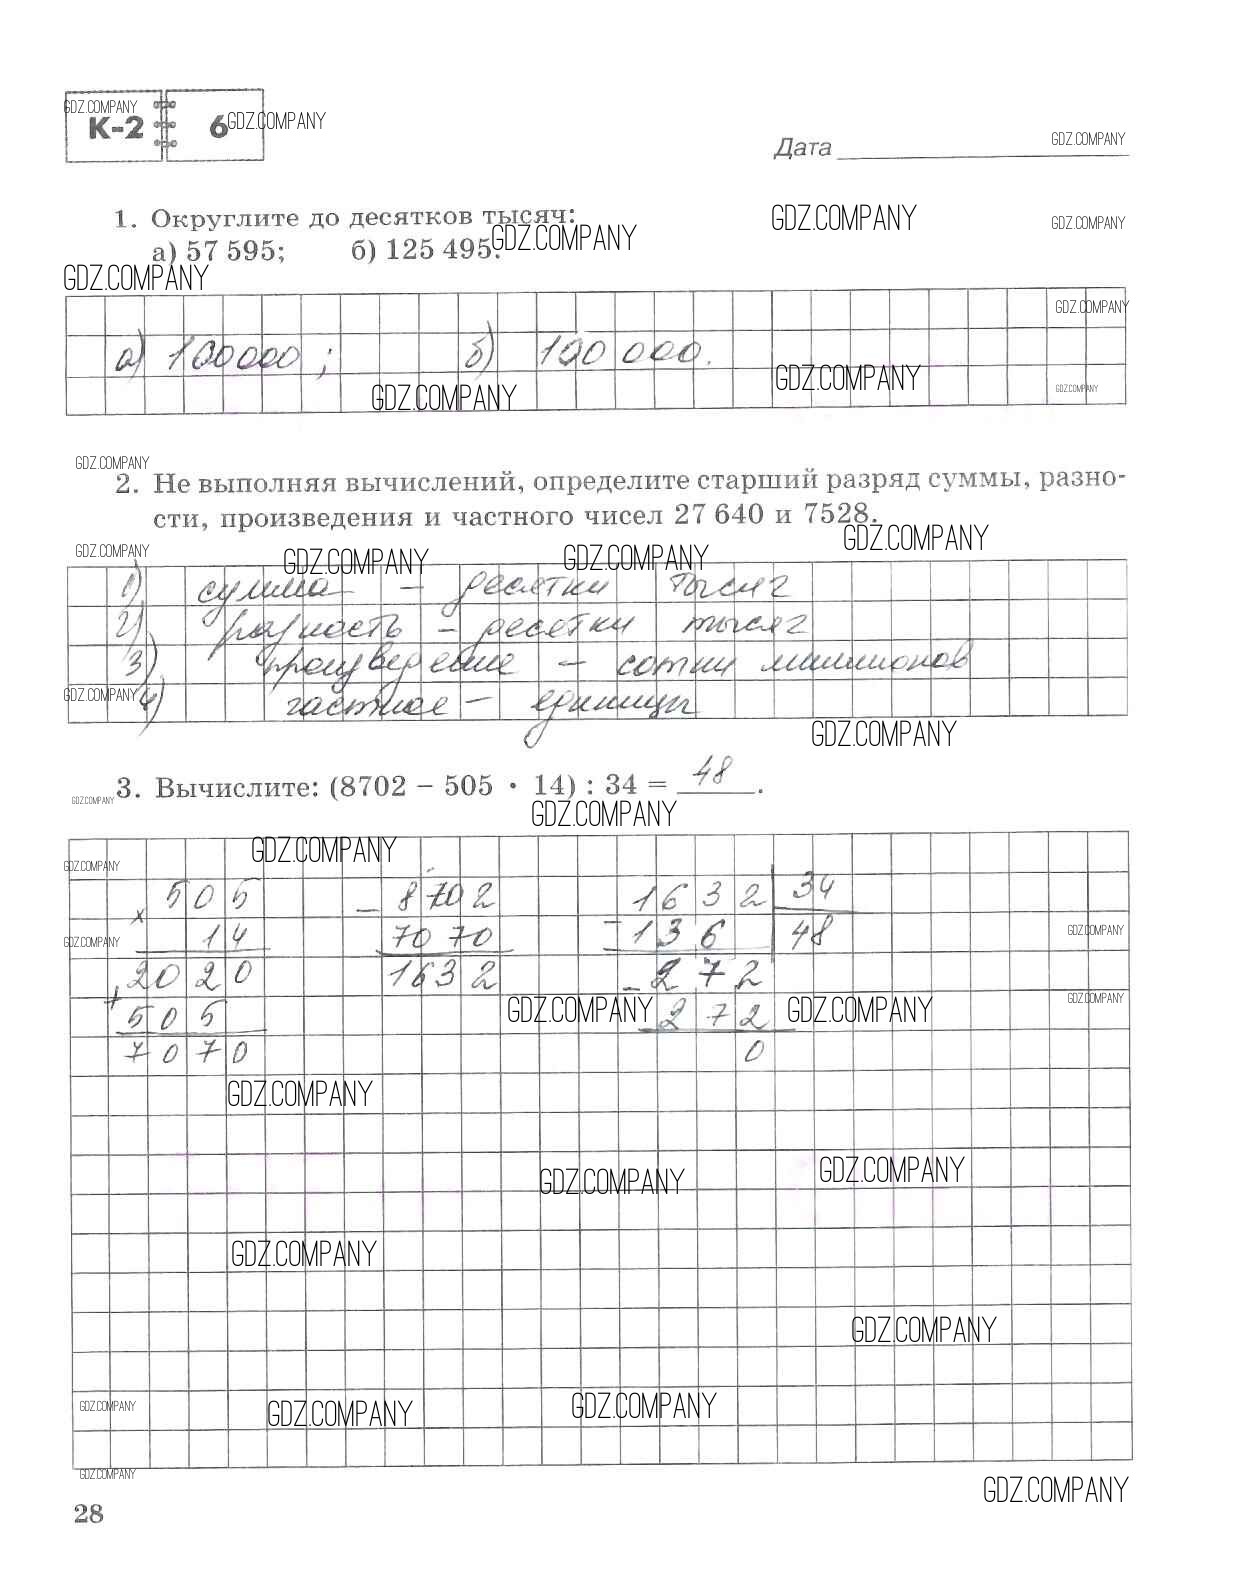 GDZ.COMPANY
К-2 6 GDZ.COMPANY
Дата GDZ.COMPANY
1. Округлите до десятков тысяч: GDZ.COMPANY GDZ.COMPANY
а) 57 595; б) 125 495. GDZ.COMPANY
GDZ.COMPANY
GDZ.COMPANY
а) 100000 ; б) 100 000.
GDZ.COMPANY GDZ.COMPANY GDZ.COMPANY
GDZ.COMPANY
2. Не выполняя вычислений, определите старший разряд суммы, разно-
сти, произведения и частного чисел 27 640 и 7528.
GDZ.COMPANY GDZ.COMPANY GDZ.COMPANY GDZ.COMPANY
1) сумма – десятки тысяч
2) разность – десятки тысяч
3) произведение – сотни миллионов
GDZ.COMPANY 4) частное – единицы
GDZ.COMPANY
3. Вычислите: (8702 – 505 · 14) : 34 = 48.
GDZ.COMPANY GDZ.COMPANY
GDZ.COMPANY GDZ.COMPANY
505 – 8702 1632 34
x 14 7070 – 136 48
GDZ.COMPANY GDZ.COMPANY
2020 1632 – 272
+ 505 GDZ.COMPANY 272 GDZ.COMPANY GDZ.COMPANY
7070 0
GDZ.COMPANY
GDZ.COMPANY GDZ.COMPANY
GDZ.COMPANY
GDZ.COMPANY
GDZ.COMPANY GDZ.COMPANY GDZ.COMPANY
GDZ.COMPANY
GDZ.COMPANY
28